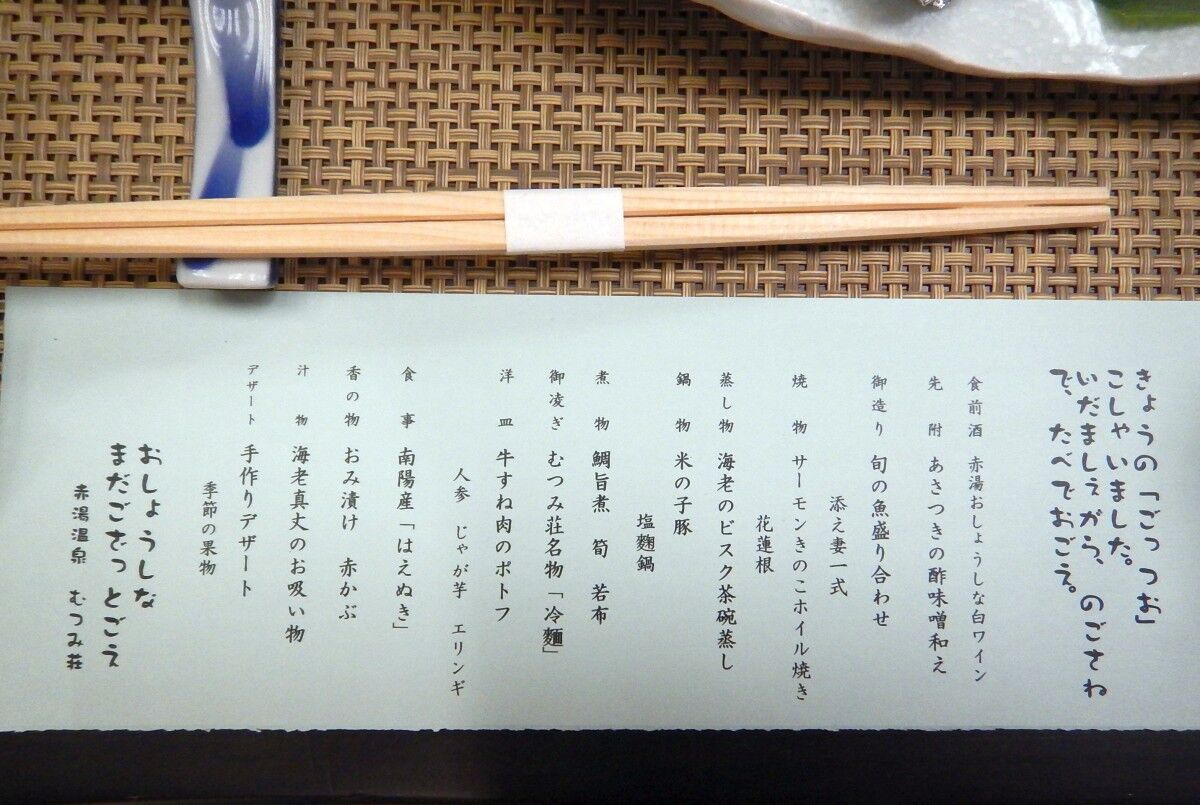 きょうの「ごっつお」
こしゃいました。
いだましぇがら、のごさね
で、たべでおごえ。
食前酒 赤湯おしょうしな白ワイン
先附 あさつきの酢味噌和え
御造り 旬の魚盛り合わせ
添え妻一式
焼物 サーモンきのこホイル焼き
花蓮根
蒸し物 海老のビスク茶碗蒸し
鍋物 米の子豚
塩麹鍋
煮物 鯛旨煮 筍 若布
御凌ぎ むつみ荘名物「冷麺」
洋皿 牛すね肉のポトフ
人参 じゃが芋 エリンギ
食事 南陽産「はえぬき」
香の物 おみ漬け 赤かぶ
汁物 海老真丈のお吸い物
デザート 手作りデザート
季節の果物
おしょうしな
まだござっとごえ
赤湯温泉 むつみ荘